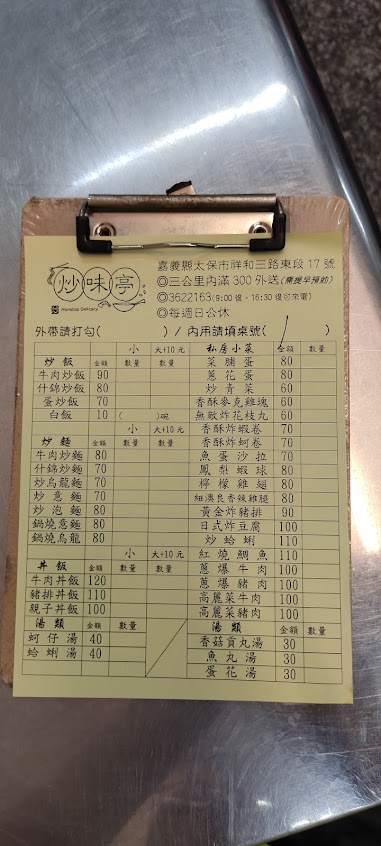 炒味亭
嘉義縣太保市祥和三路東段17號
◎三公里內滿300外送(需提早預約)
◎3622163(9:00後,16:30後可來電)
◎每週日公休
外帶請打勾( )/內用請填桌號( )
小 大+10元 私房小菜 金額 數量
炒飯 金額 數量 數量 菜脯蛋 80
牛肉炒飯 90 蔥花蛋 80
什錦炒飯 80 炒青菜 60
蛋炒飯 70 香酥麥克雞塊 60
白飯 10 ( )碗 無敵炸花枝丸 70
小 大+10元 香酥炸蝦卷 70
炒麵 金額 數量 數量 香酥炸蚵卷 70
牛肉炒麵 80 魚蛋沙拉 70
什錦炒麵 70 鳳梨蝦球 80
炒烏龍麵 70 檸檬雞翅 80
炒意麵 70 細澳良香辣雞腿 80
炒泡麵 80 黃金炸豬排 90
鍋燒意麵 80 日式炸豆腐 100
鍋燒烏龍 80 炒蛤蜊 110
小 大+10元 紅燒鯛魚 110
丼飯 金額 數量 數量 蔥爆牛肉 100
牛肉丼飯 120 蔥爆豬肉 100
豬排丼飯 110 高麗菜牛肉 100
親子丼飯 100 高麗菜豬肉 100
湯類 金額 數量 湯類 金額 數量
蚵仔湯 40 香菇貢丸湯 30
蛤蜊湯 40 魚丸湯 30
蛋花湯 30